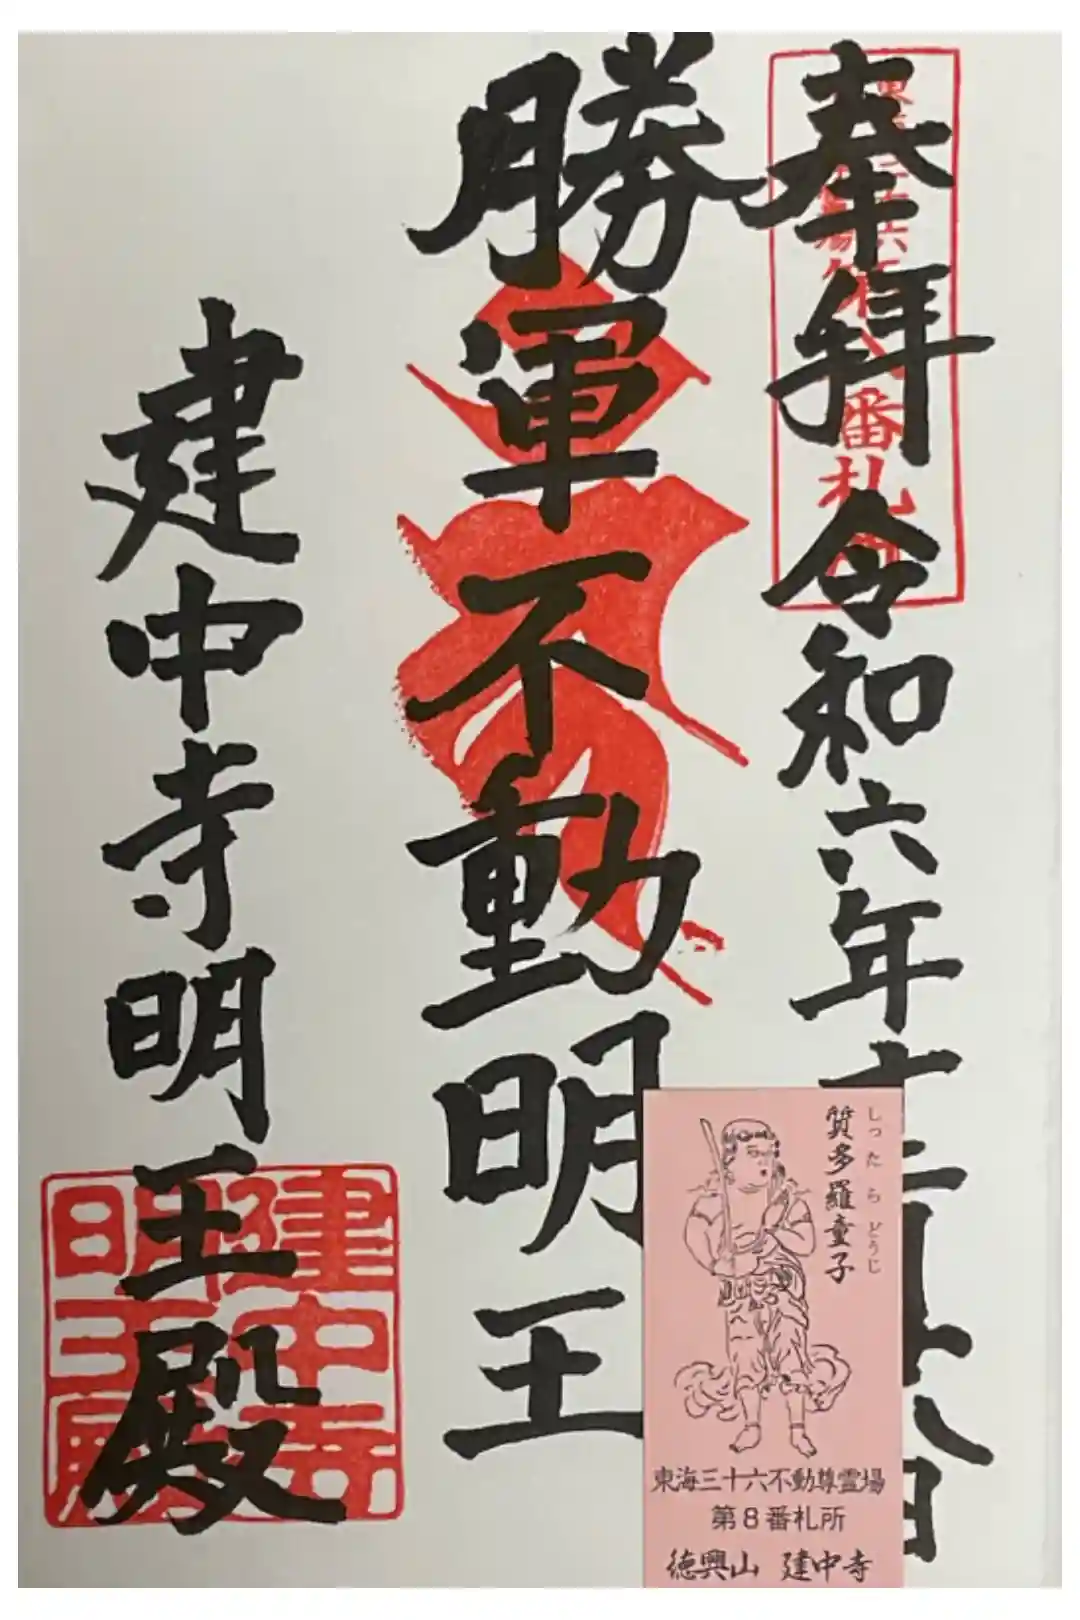 奉拝 令和六年十二月廿八日
勝軍不動明王
建中寺明王殿
番札
建中寺
明王殿
しったらどうじ
質多羅童子
東海三十六不動尊霊場
第8番札所
徳興山 建中寺